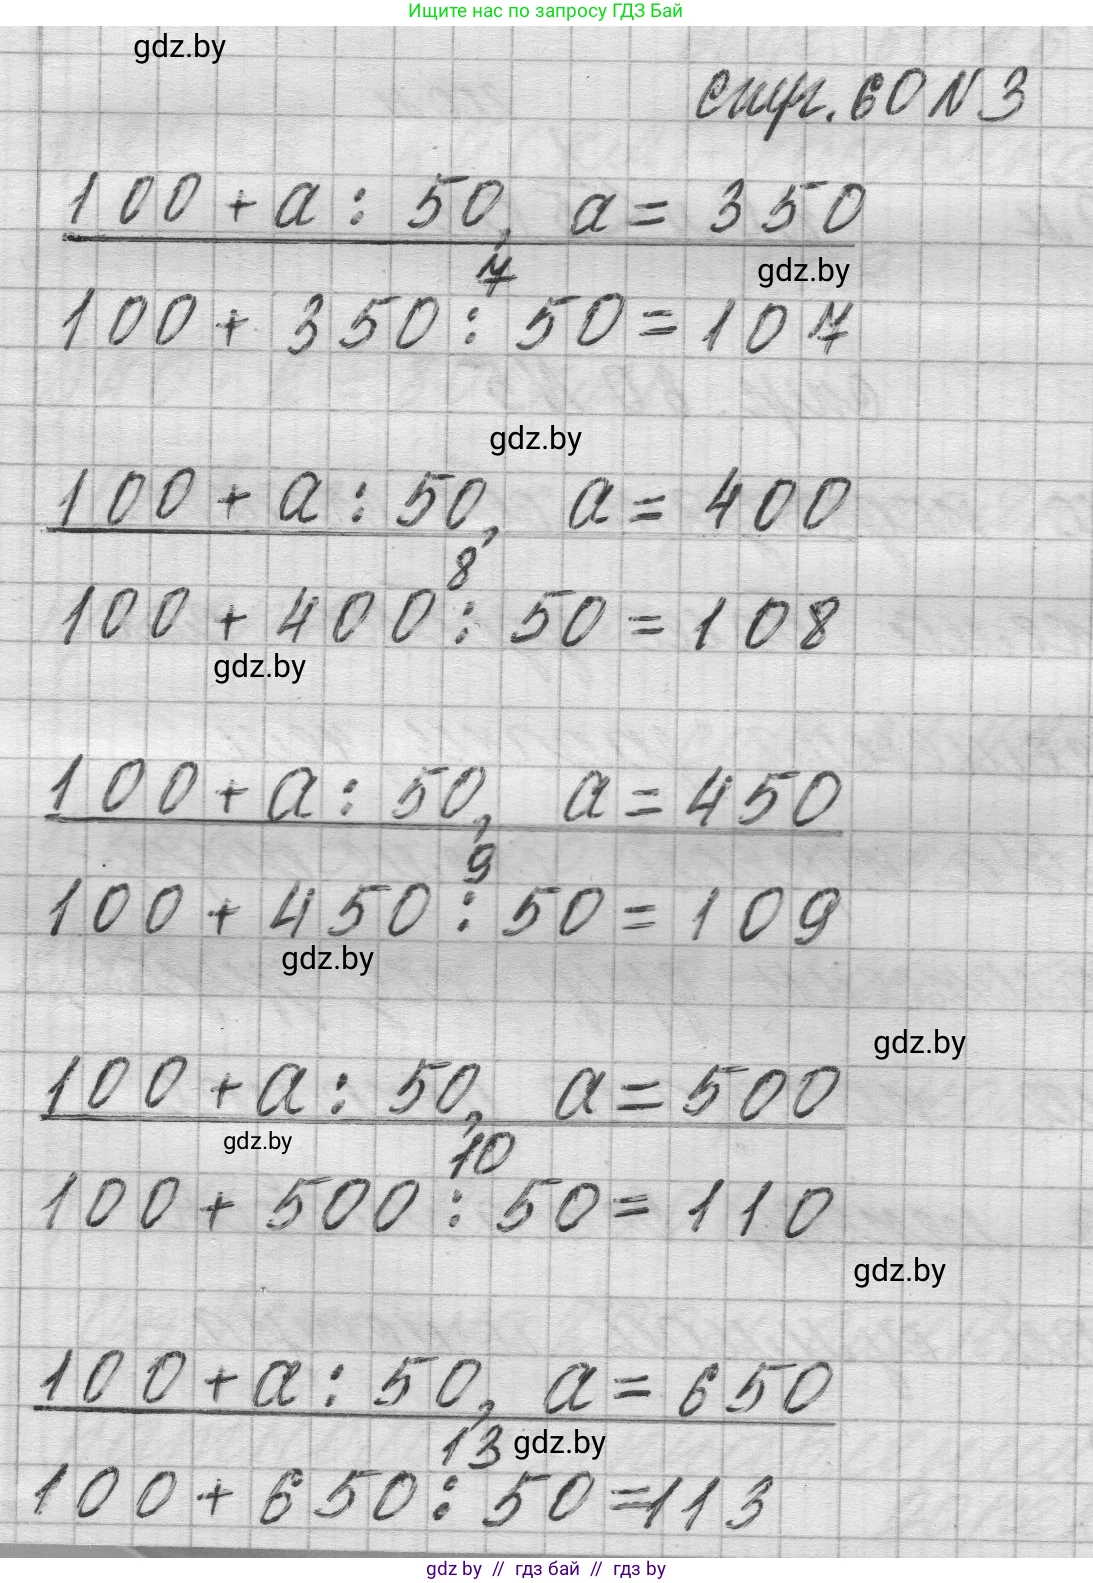 Ищите нас по запросу ГДЗ Бай
gdz.by
стр. 60 N 3
100 + a : 50, a = 350
gdz.by
7
100 + 350 : 50 = 107
gdz.by
100 + a : 50, a = 400
8
100 + 400 : 50 = 108
gdz.by
100 + a : 50, a = 450
9
100 + 450 : 50 = 109
gdz.by
gdz.by
100 + a : 50, a = 500
gdz.by
10
100 + 500 : 50 = 110
gdz.by
100 + a : 50, a = 650
13
gdz.by
100 + 650 : 50 = 113
gdz by // гдз бай // гдз by